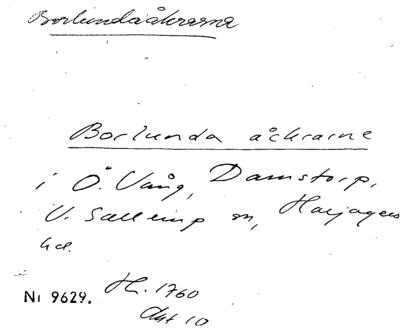 Borlundaåkrarna
Borlunda åckrarne
i Ö. Vång, Damstorp,
V. Sallerup sn, Harjagers
hd.
Nr 9629. Hl. 1760
Akt 10